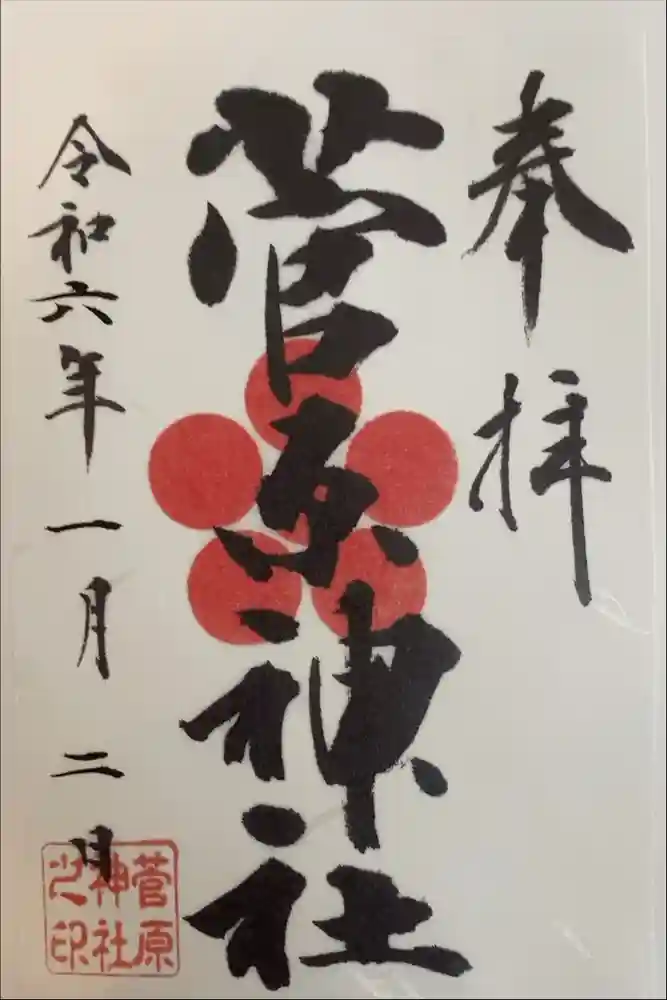 奉拝
菅原神社
令和六年一月二日
菅原
神社
之印